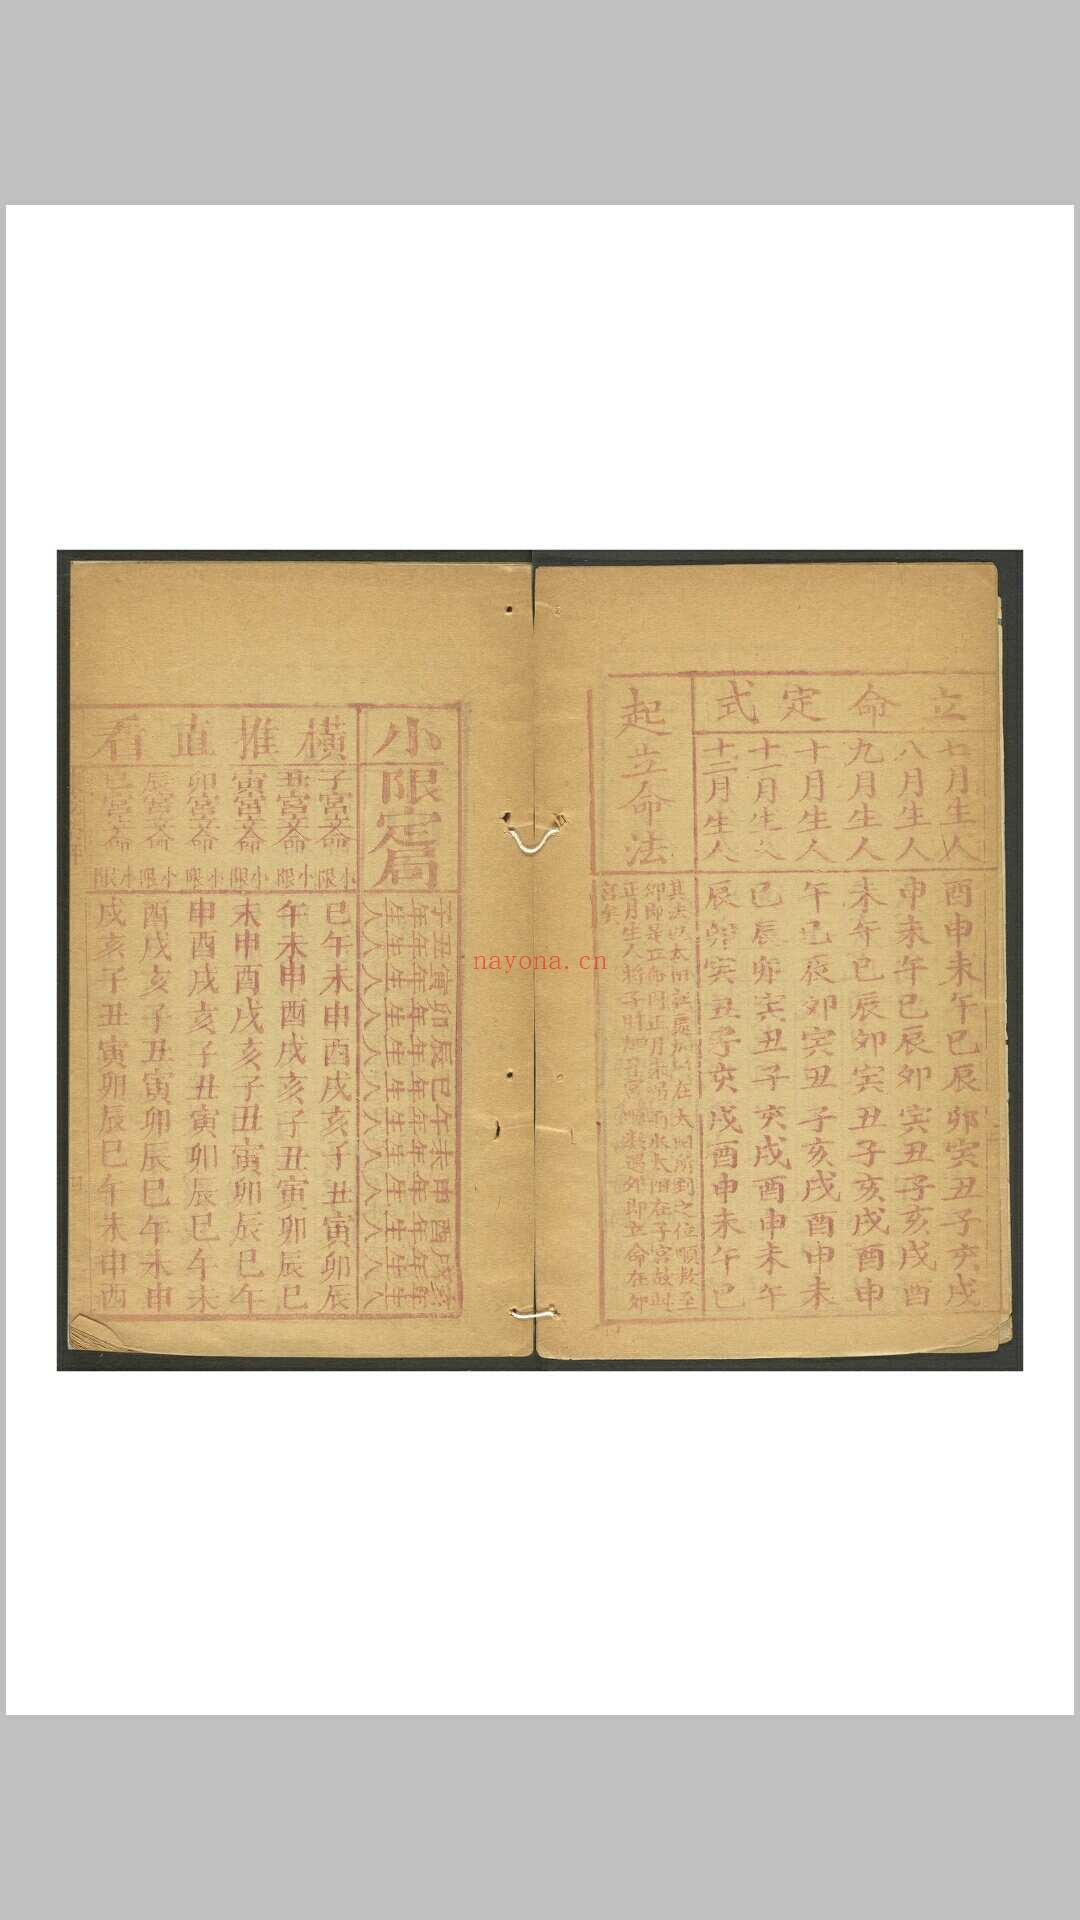 立命定式
七月生人
酉申未午巳辰卯寅丑子亥戌
八月生人
申未午巳辰卯寅丑子亥戌酉
九月生人
未午巳辰卯寅丑子亥戌酉申
十月生人
午巳辰卯寅丑子亥戌酉申未
十一月生人
巳辰卯寅丑子亥戌酉申未午
十二月生人
辰卯寅丑子亥戌酉申未午巳
起立命法
其法以太陽
在太陽所到之位順數至
卯即是立命
正月
雨水太陽在子宮故
正月生人將
遇卯即立命在卯
宮矣
小限定局
子年生人
丑年生人
寅年生人
卯年生人
辰年生人
巳年生人
午年生人
未年生人
申年生人
酉年生人
戌年生人
亥年生人
橫推直看
子宮命小限
巳午未申酉戌亥子丑寅卯辰
丑宮命小限
午未申酉戌亥子丑寅卯辰巳
寅宮命小限
未申酉戌亥子丑寅卯辰巳午
卯宮命小限
申酉戌亥子丑寅卯辰巳午未
辰宮命小限
酉戌亥子丑寅卯辰巳午未申
巳宮命小限
戌亥子丑寅卯辰巳午未申酉
nayona.cn